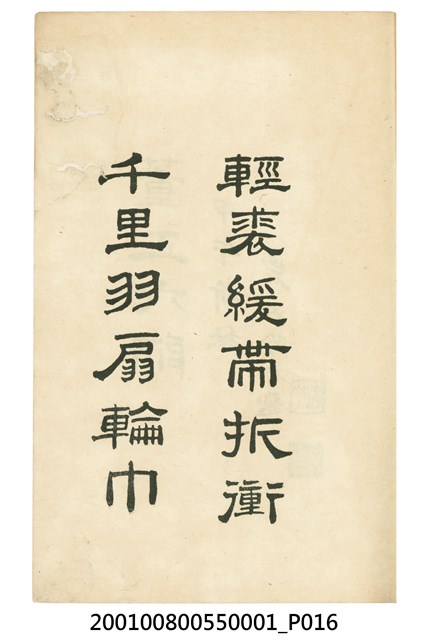 輕裘緩帶折衝
千里羽扇輪巾
200100800550001_P016